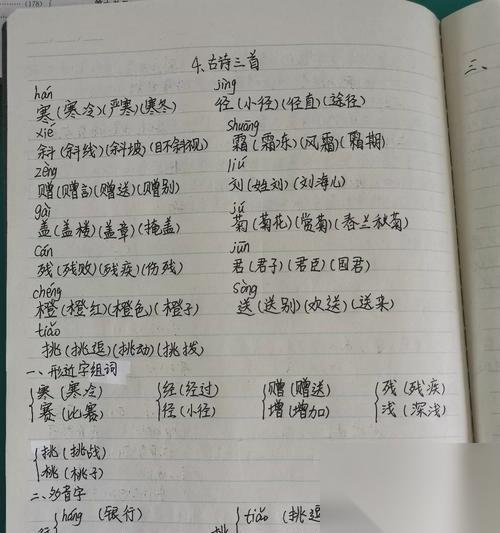 (178)
三、
4.古诗三首
hán jìng
寒(寒冷)(严寒)(寒冬) 径(小径)(径直)(途径)
xié shuāng
斜(斜线)(斜坡)(目不斜视) 霜(霜冻)(风霜)(霜期)
zèng liú
赠(赠言)(赠送)(赠别) 刘(姓刘)(刘海儿)
gài jú
盖(盖楼)(盖章)(掩盖) 菊(菊花)(赏菊)(春兰秋菊)
cán jūn
残(残败)(残疾)(伤残) 君(君子)(君臣)(国君)
chéng sòng
橙(橙红)(橙色)(橙子) 送(送别)(欢送)(送来)
tiǎo
挑(挑逗)(挑动)(挑拨)
一、形近字组词
寒(寒冷) 经(经过) 赠(赠送) 残(残疾)
赛(比赛) 径(小径) 增(增加) 浅(深浅)
挑(挑战)
桃(桃子)
二、多音字
háng(银行) tiǎo(挑逗
行 挑